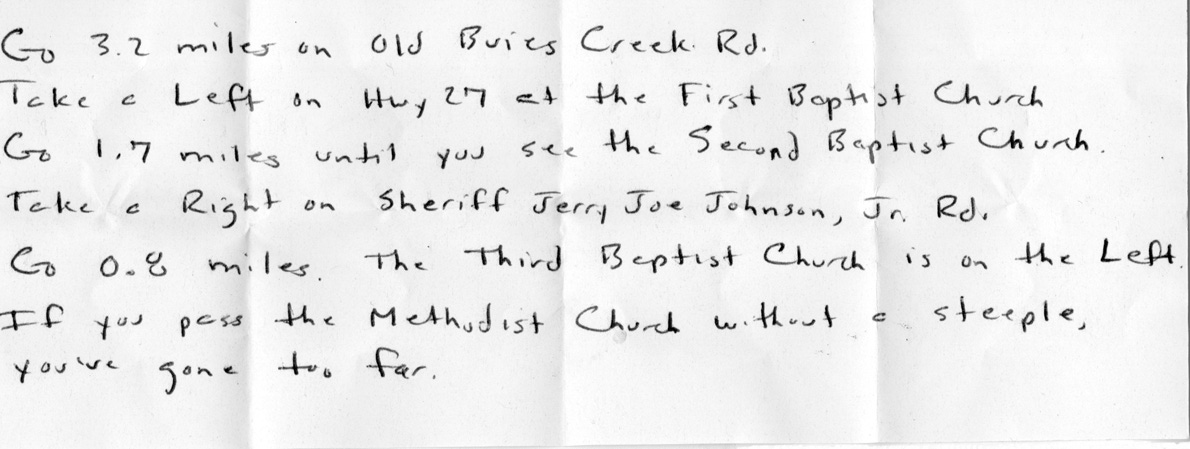 Go 3.2 miles on Old Buies Creek Rd.
Take a Left on Hwy 27 at the First Baptist Church
Go 1.7 miles until you see the Second Baptist Church.
Take a Right on Sheriff Jerry Joe Johnson, Jr. Rd.
Go 0.8 miles. The Third Baptist Church is on the Left.
If you pass the Methodist Church without a steeple,
you've gone too far.